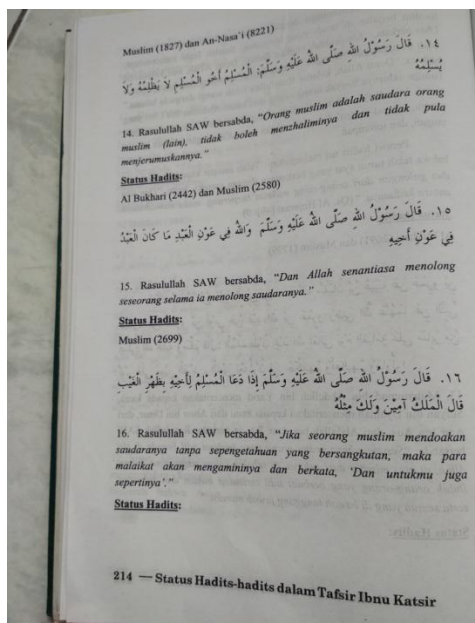 Muslim (1827) dan An-Nasa'i (8221)
١٤. قَالَ رَسُوْلُ اللهِ صَلَّى اللهُ عَلَيْهِ وَسَلَّمَ: الْمُسْلِمُ أَخُو الْمُسْلِمِ لاَ يَظْلِمُهُ وَلاَ
يُسْلِمُهُ
14. Rasulullah SAW bersabda, “Orang muslim adalah saudara orang
muslim (lain), tidak boleh menzhaliminya dan tidak pula
menjerumuskannya.”
Status Hadits:
Al Bukhari (2442) dan Muslim (2580)
١٥. قَالَ رَسُوْلُ اللهِ صَلَّى اللهُ عَلَيْهِ وَسَلَّمَ وَاللهُ فِي عَوْنِ الْعَبْدِ مَا كَانَ الْعَبْدُ
فِي عَوْنِ أَخِيهِ
15. Rasulullah SAW bersabda, “Dan Allah senantiasa menolong
seseorang selama ia menolong saudaranya.”
Status Hadits:
Muslim (2699)
١٦. قَالَ رَسُوْلُ اللهِ صَلَّى اللهُ عَلَيْهِ وَسَلَّمَ إِذَا دَعَا الْمُسْلِمُ لِأَخِيْهِ بِظَهْرِ الْغَيْبِ
قَالَ الْمَلَكُ آمِيْنَ وَلَكَ مِثْلُهُ
16. Rasulullah SAW bersabda, “Jika seorang muslim mendoakan
saudaranya tanpa sepengetahuan yang bersangkutan, maka para
malaikat akan mengamininya dan berkata, ‘Dan untukmu juga
sepertinya’.”
Status Hadits:
214 — Status Hadits-hadits dalam Tafsir Ibnu Katsir